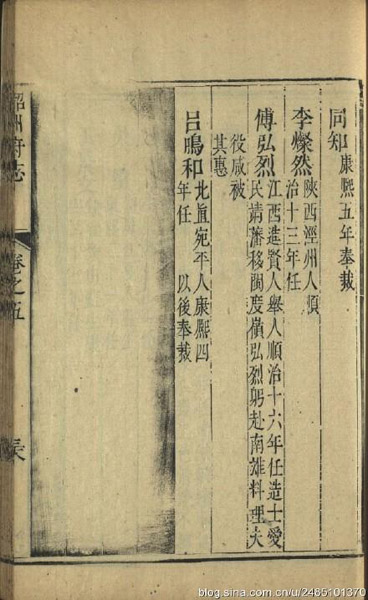 同知 康熙五年奉裁
李燦然 陝西涇州人順
治十三年任
傅弘烈 江西進賢人舉人順治十六年任造士愛
民靖藩移閩度嶺弘烈躬赴南雄料理夫
役咸被
其惠
呂鳴和 北直宛平人康熙四
年任 以後奉裁
韶州府志 卷之五
blog.sina.com.cn/u/2485101370